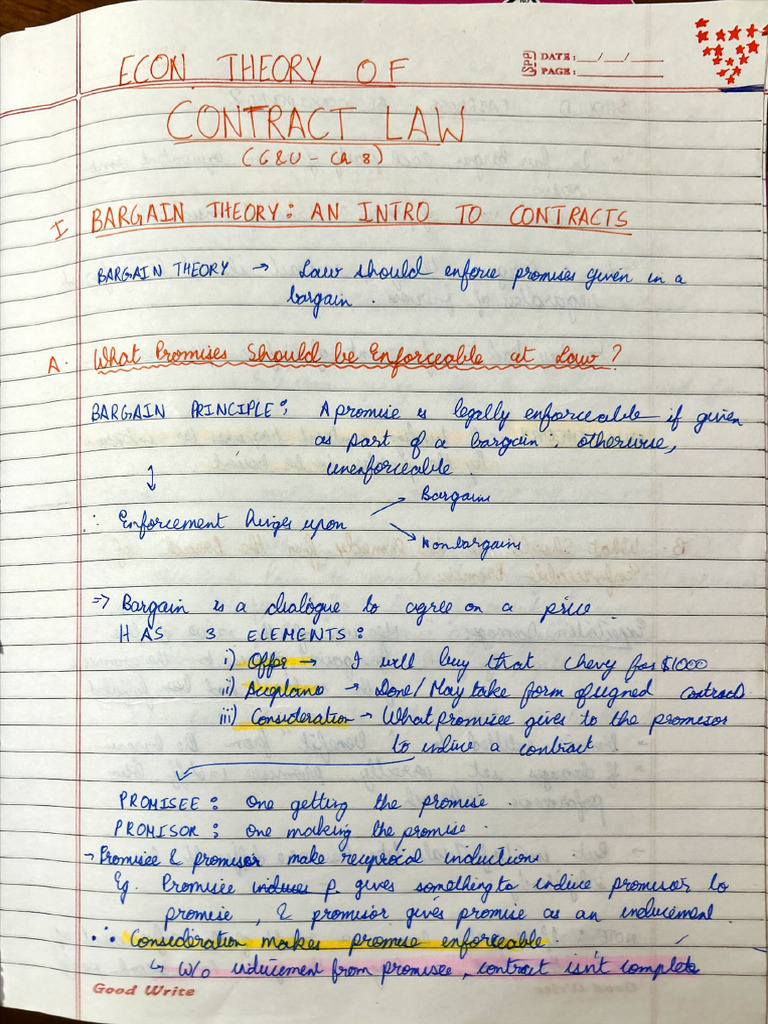 ECON. THEORY OF
SPP DATE: __/__/__
PAGE: ________
CONTRACT LAW
(C&U - Ch 8)
I BARGAIN THEORY: AN INTRO TO CONTRACTS
BARGAIN THEORY → Law should enforce promises given in a
bargain.
A. What Promises Should be Enforceable at Law?
BARGAIN PRINCIPLE: A promise is legally enforceable if given
as part of a bargain; otherwise,
unenforceable.
∴ Enforcement hinges upon
Bargains
Nonbargains
⇒ Bargain is a dialogue to agree on a price.
HAS 3 ELEMENTS:
i) Offer → I will buy that Chevy for $1000
ii) Acceptance → Done/May take form of signed contract
iii) Consideration → What promisee gives to the promisor
to induce a contract
PROMISEE: One getting the promise.
PROMISOR: One making the promise.
→ Promisee & promisor make reciprocal inductions
Eg. Promisee induces p. gives something to induce promisor to
promise, & promisor gives promise as an inducement.
∴ Consideration makes promise enforceable.
↳ W/o inducement from promisee, contract isn't complete
Good Write